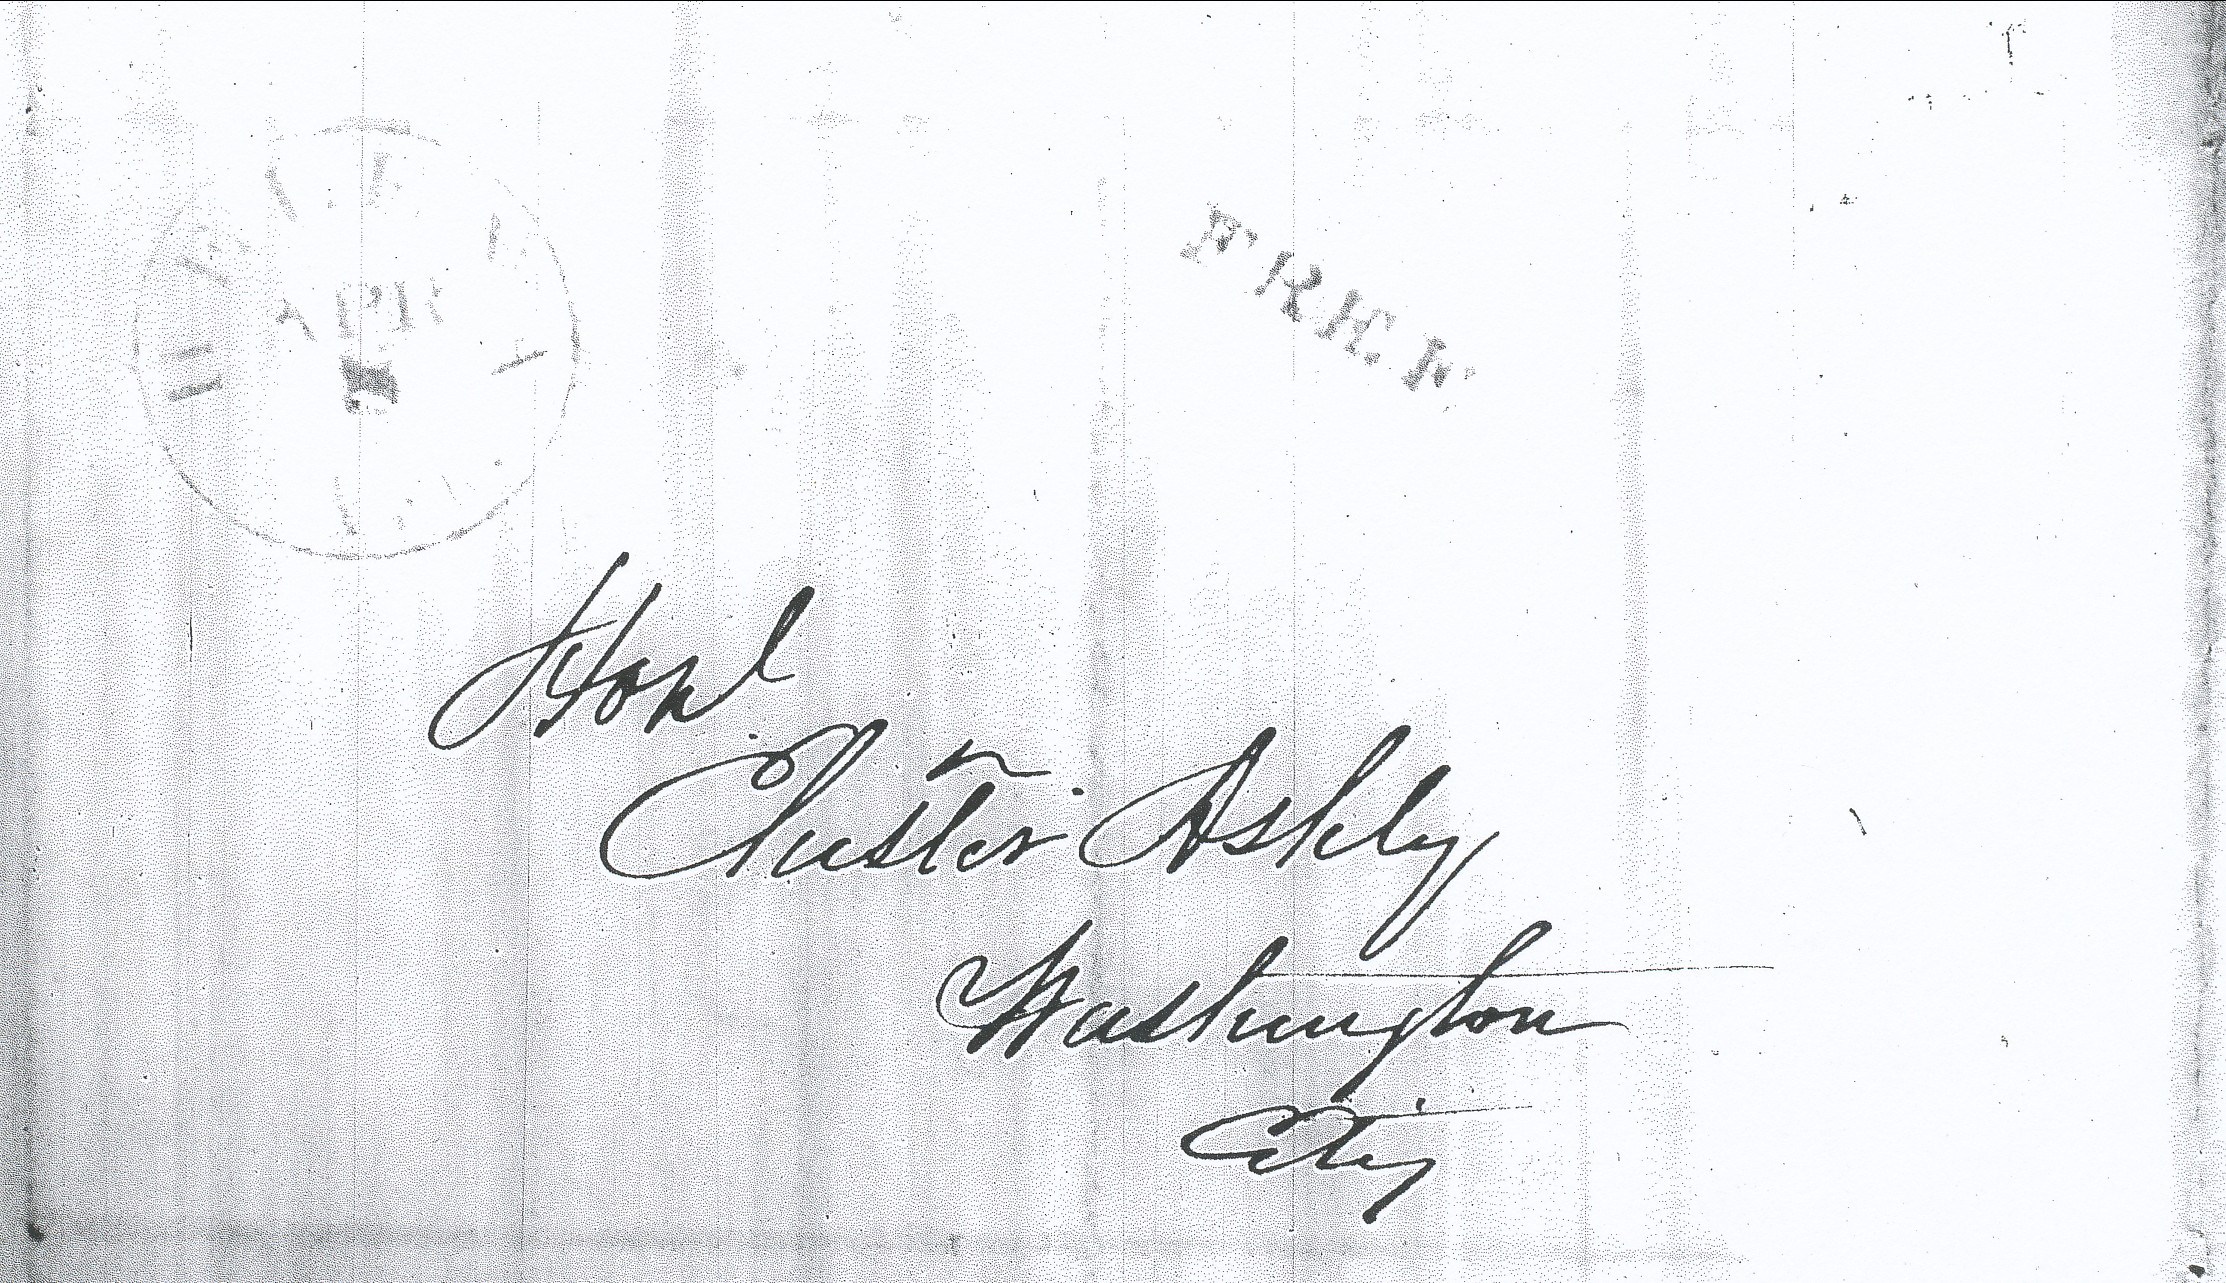 APR
FREE
Honl
Chester Ashley
Washington
City